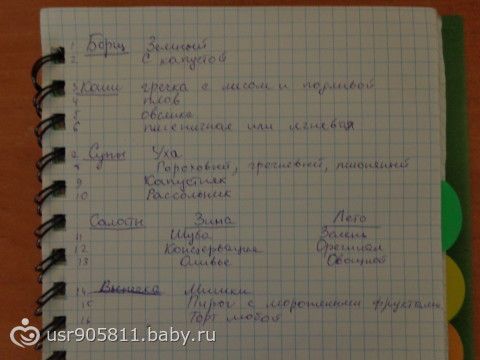 1 Борщ Зеленый
2 С капустой
3 Каши гречка с мясом и подливой
4 плов
5 овсянка
6 пшеничная или ячневая
7 Супы Уха
8 Гороховый, гречневый, пшонянный
9 Капустняк
10 Рассольник
Салаты Зима Лето
11 Шуба Зелень
12 Консервация
13 Оливье Овощной
14 Выпечка Мишки
15 Пирог с морожеными фруктами
16 Торт любой
usr905811.baby.ru